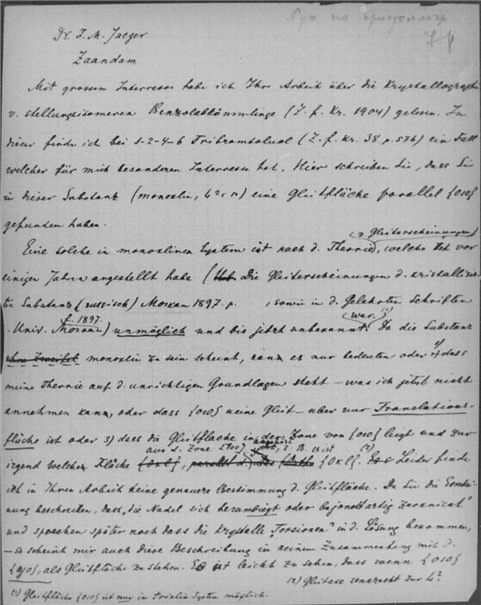 Dr. F. M. Jaeger
Zaandam
Mit grossem Interresse habe ich Ihre Arbeit über die Krystallographie
v. stellungsisomeren Benzolabkömmlinge (Z. f. Kr. 1904) gelesen. In
dieser finde ich bei 1-2-4-6 Tribromtoluol (Z. f. Kr. 38. p. 576) ein Fall
welcher für mich besonderen Interresse hat. Hier schreiben Sie, dass Sie
in dieser Substanz (monoclin, ) eine Gleitfläche parallel {010}
gefunden haben.
d. Gleiterscheinungen
Eine solche in monoclinen System ist nach d. Theorie, welche ich vor
einigen Jahren angestellt habe ( Die Gleiterscheinungen d. kristallinis-
ten Substanz (russisch) Moskau 1897. p. , sowie in d. Gelehrten Schriften
d. Univ. Moskau 1897) unmöglich und bis jetzt unbekannt war. Da die Substanz
monoclin zu sein scheint, kann es nur bedeuten oder 1) dass
meine Theorie auf d. unrichtigen Grundlagen steht – was ich jetzt nicht
annehmen kann, oder dass {010} keine Gleit- aber nur Translations-
fläche ist oder 3) dass die Gleitfläche in der Zone von {010} liegt und zur
aus d. Zone z. B. ist (2)
irgend welcher Fläche {0kl}, {0kl}. Leider finde
ich in Ihren Arbeit keine genauere Bestimmung d. Gleitfläche. Da Sie die Erschei-
nung beschreiben, dass, die Nadel sich
und sprechen später noch dass die Krystalle "Torsionen" in d. Lösung bekommen,
– so scheint mir auch diese Beschreibung in keinem Zusammenhang mit d.
{010}, als Gleitfläche zu stehen. Es ist leicht zu sehen, dass wenn {010}
1) Gleitfläche {010} ist nur in Triclin System möglich.
(2) Gleitaxe senkrecht zur